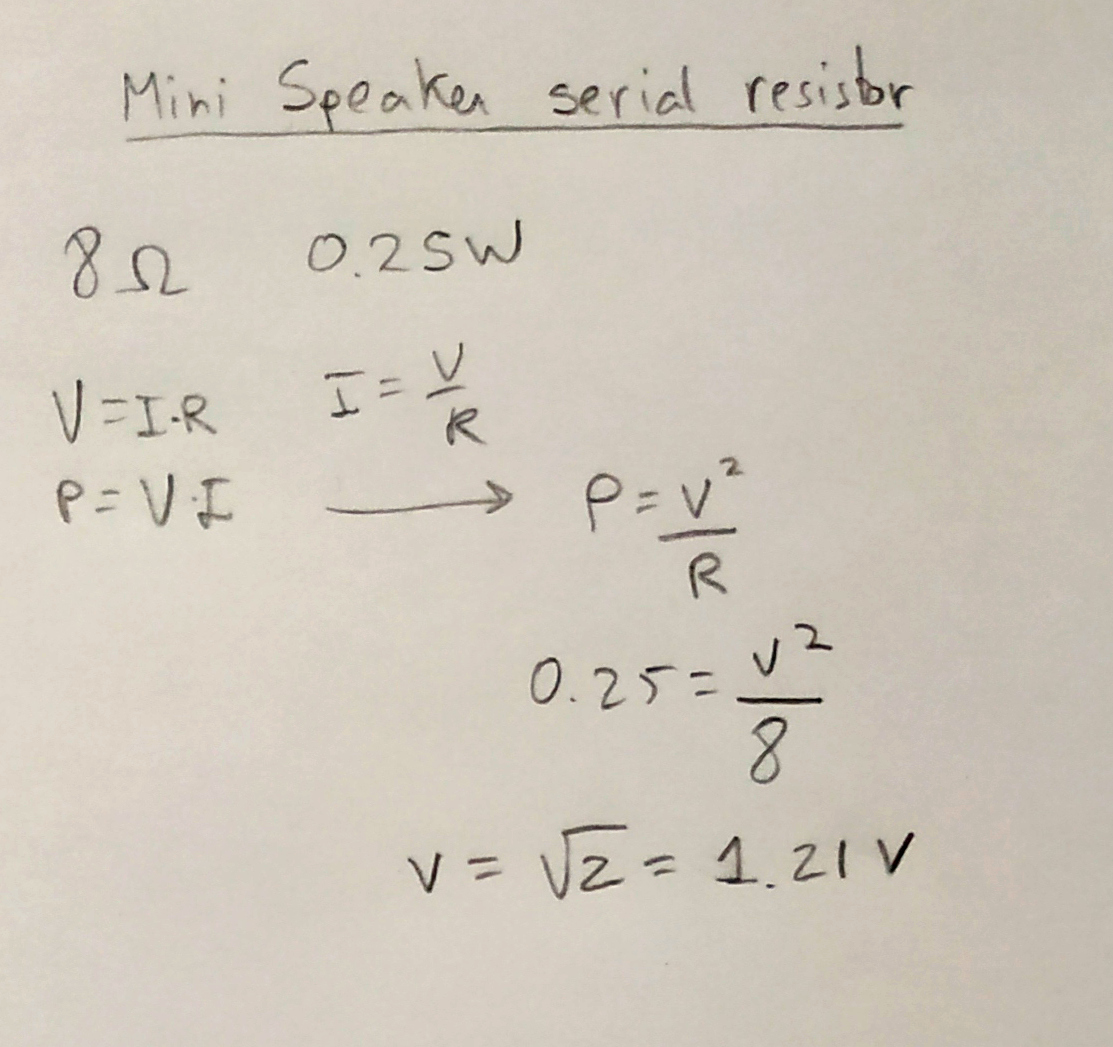 Mini Speaker serial resistor
8Ω 0.25W
V=I·R I=V/R
P=V·I → P=V²/R
0.25=V²/8
V=√2=1.21V